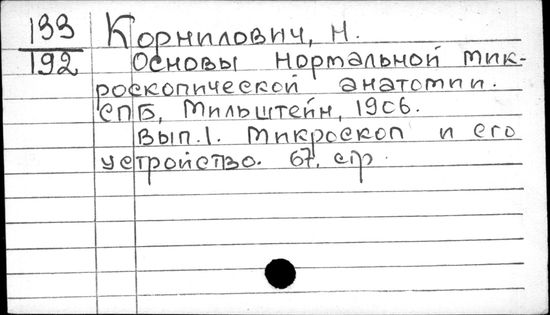 133 Корнилович, Н.
192 Основы нормальной мик-
роскопической анатомии.
СПБ, Мильштейн, 1906.
Вып.1. Микроскоп и его
устройство. 67. стр.